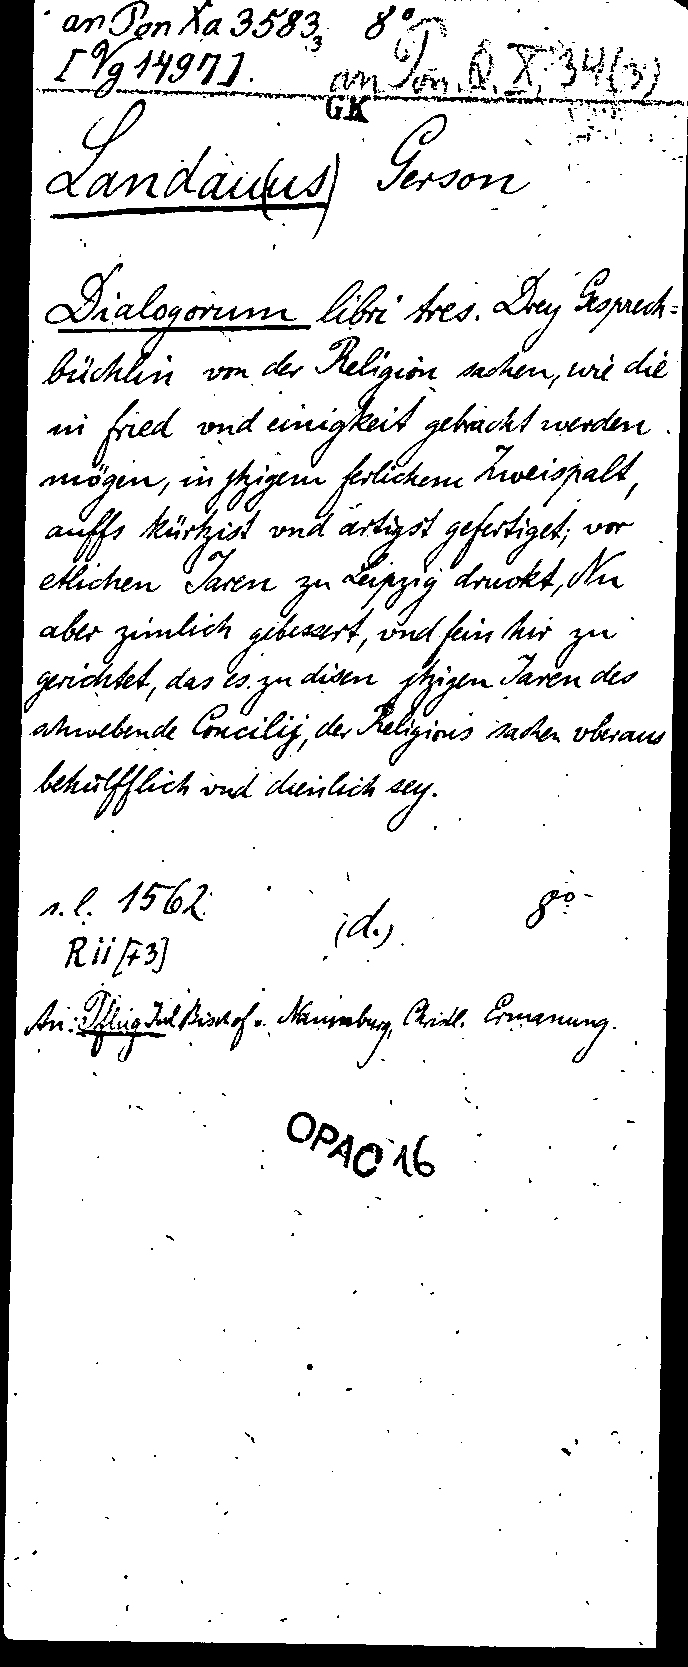 an Pon Xa 3583, 8°
3
[Vg 1497]. an Pon. Q. X, 34(3)
GK
Landau(us) Gerson
Dialogorum libri tres. Drey Gesprech=
büchlin von der Religion sachen, wie die
in fried vnd einigkeit gebracht werden
mögen, in jtzigem ferlichem Zweispalt,
auffs kürtzist vnd artigst gefertiget; vor
etlichen Jaren zu Leipzig druckt, Nu
aber zimlich gebessert, vnd fein hir zu
gerichtet, das es zu disen jtzigen Jaren des
schwebende Concilij, der Religions sachen vberaus
behülfflich vnd dienlich sey.
s.l. 1562. (d.) 8°
R ii [+3]
An: Pflug Jul Bischof v. Naumburg, Christl. Ermanung.
OPAC 16